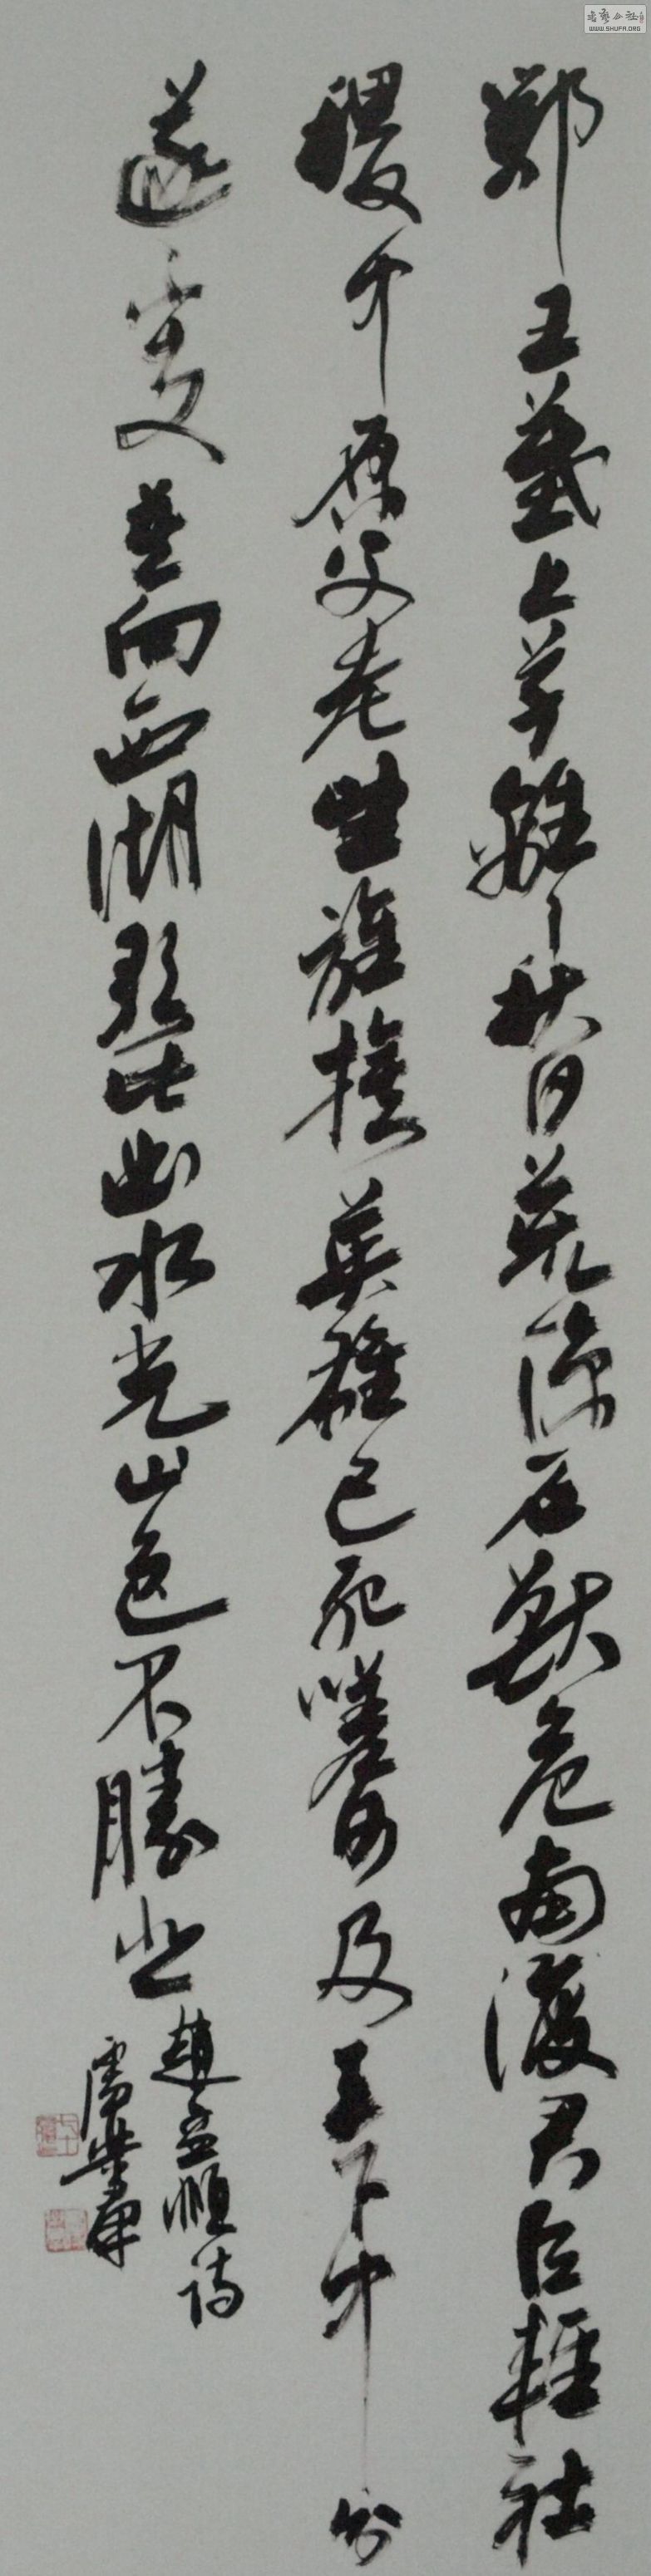 鄂王墓上草離々秋日荒涼石獸危南渡君臣輕社
稷中原父老望旌旗英雄已死嗟何及天下中分
遂不支莫向西湖歌此曲水光山色不勝悲
趙孟頫詩
書艺公社
WWW.SHUFA.ORG